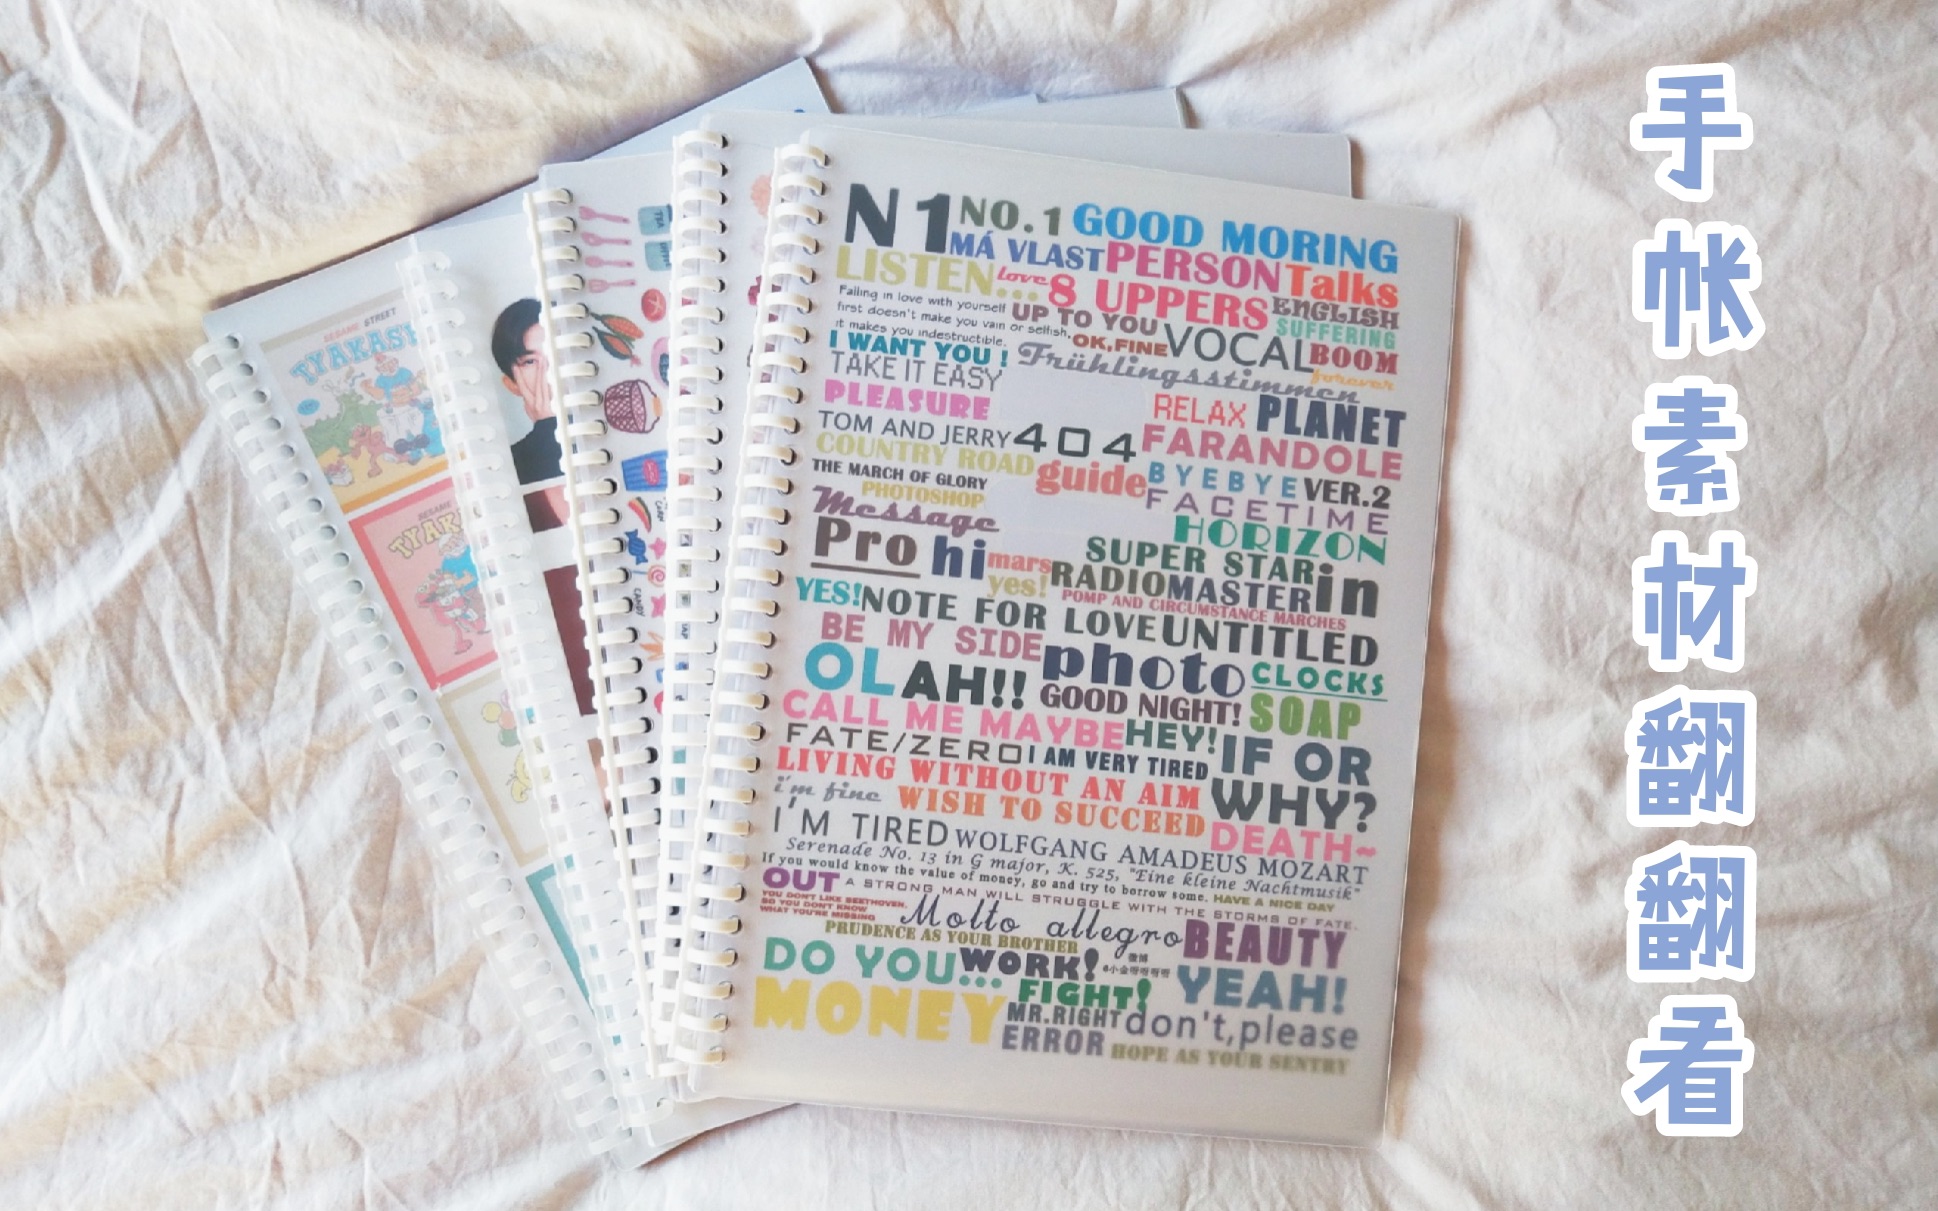 手帐素材翻翻看
N 1 NO.1 GOOD MORING
MÁ VLAST PERSON Talks
LISTEN... love 8 UPPERS ENGLISH
Falling in love with yourself
first doesn't make you vain or selfish,
it makes you indestructible.
UP TO YOU VOCAL SUFFERING
OK,FINE BOOM
I WANT YOU ! Frühlingsstimmen forever
TAKE IT EASY
PLEASURE RELAX PLANET
TOM AND JERRY 404 FARANDOLE
COUNTRY ROAD guide BYEBYE VER.2
THE MARCH OF GLORY
PHOTOSHOP FACETIME
Message HORIZON
Pro hi mars SUPER STAR in
yes! RADIO MASTER
YES! NOTE FOR LOVE POMP AND CIRCUMSTANCE MARCHES
UNTITLED
BE MY SIDE photo CLOCKS
OL AH!! GOOD NIGHT! SOAP
CALL ME MAYBE HEY! IF OR
FATE/ZERO I AM VERY TIRED
LIVING WITHOUT AN AIM WHY?
i'm fine WISH TO SUCCEED
I'M TIRED WOLFGANG AMADEUS MOZART DEATH~
Serenade No. 13 in G major, K. 525, "Eine kleine Nachtmusik"
If you would know the value of money, go and try to borrow some. HAVE A NICE DAY
OUT A STRONG MAN WILL STRUGGLE WITH THE STORMS OF FATE.
YOU DON'T LIKE BEETHOVEN.
SO YOU DON'T KNOW
WHAT YOU'RE MISSING
Molto allegro BEAUTY
PRUDENCE AS YOUR BROTHER
DO YOU... WORK! YEAH!
MONEY FIGHT!
MR.RIGHT don't,please
ERROR HOPE AS YOUR SENTRY
SESAME STREET